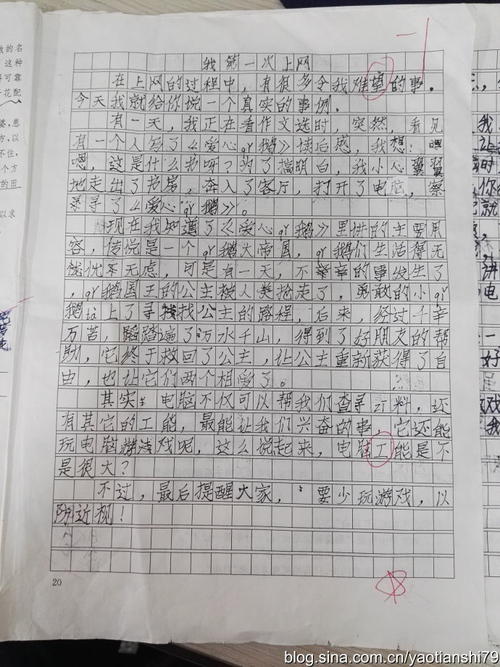 我第一次上网
在上网的过程中，有很多令我难望的事。
今天我就给你说一个真实的事例。
有一天，我正在看作文选时，突然，看见
有一个人写了《爱心qr鹅》读后感，我想：嗯
嗯，这是什么物呀？为了搞明白，我小心翼翼
地走出了书房，奔入了客厅，打开了电脑，察
寻了《爱心qr鹅》。
现在我知道了《爱心qr鹅》里讲的主要内
容，传说是一个qr鹅大帝国，qr鹅们生活得无
忧无虑，可是有一天，不幸的事发生了
，qr鹅国王的公主被人类抢走了，勇敢的小qr
鹅上了寻找公主的路程，后来，经过千辛
万苦，踏遍了万水千山，得到了好朋友的帮
助，它终于救回了公主，让公主重新获得了自
由，也让它们两个相爱了。
其实，电脑不仅可以帮我们查寻资料，还
有其它的工能，最能让我们兴奋的事，它还能
玩电脑游戏呢，这么说起来，电脑工能是不
是很大？
不过，最后提醒大家，要少玩游戏，以
防近视！
20
blog.sina.com.cn/yaotianshi79